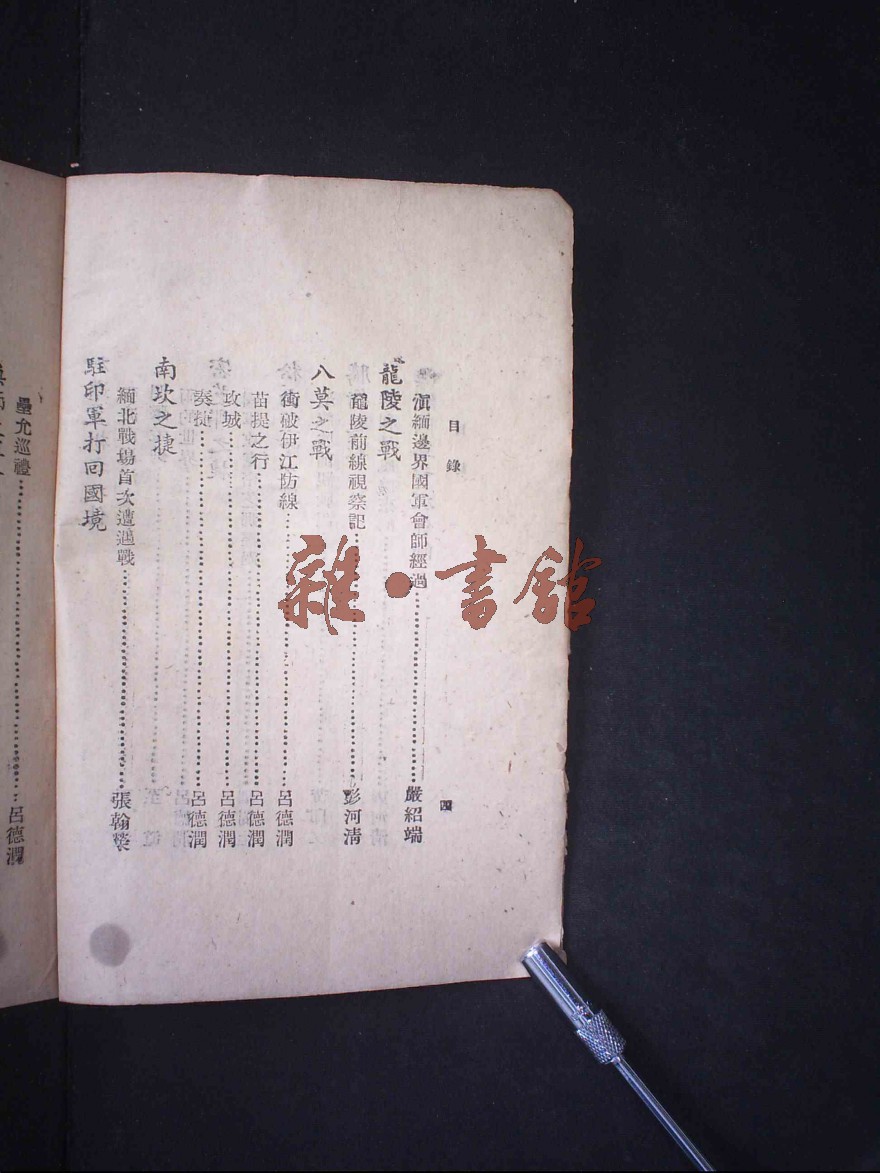 目錄 四
滇緬邊界國軍會師經過……嚴紹端
龍陵之戰
龍陵前線視察記……彭河清
八莫之戰
衝破伊江防線……呂德潤
苗提之行……呂德潤
攻城……呂德潤
奏捷……呂德潤
南坎之捷
緬北戰場首次遭遇戰……張翰槳
駐印軍打回國境
壘允巡禮……呂德潤
雜·書館